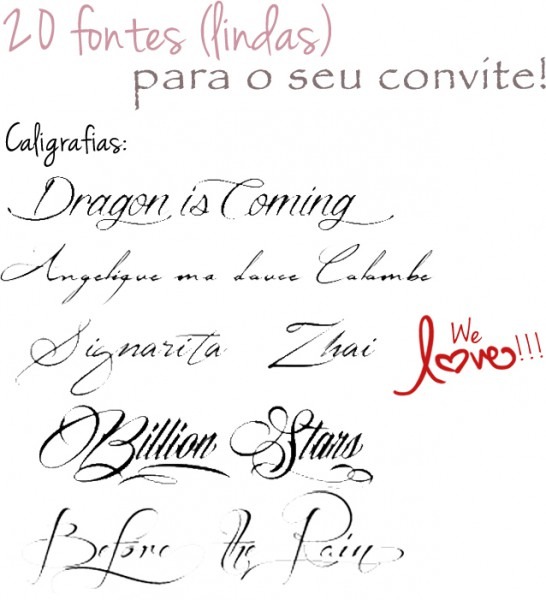 20 fontes (lindas)
para o seu convite!
Caligrafias:
Dragon is Coming
Angelique ma douce Colombe
Signarita Zhai
We
love!!!
Billion Stars
Before the Rain